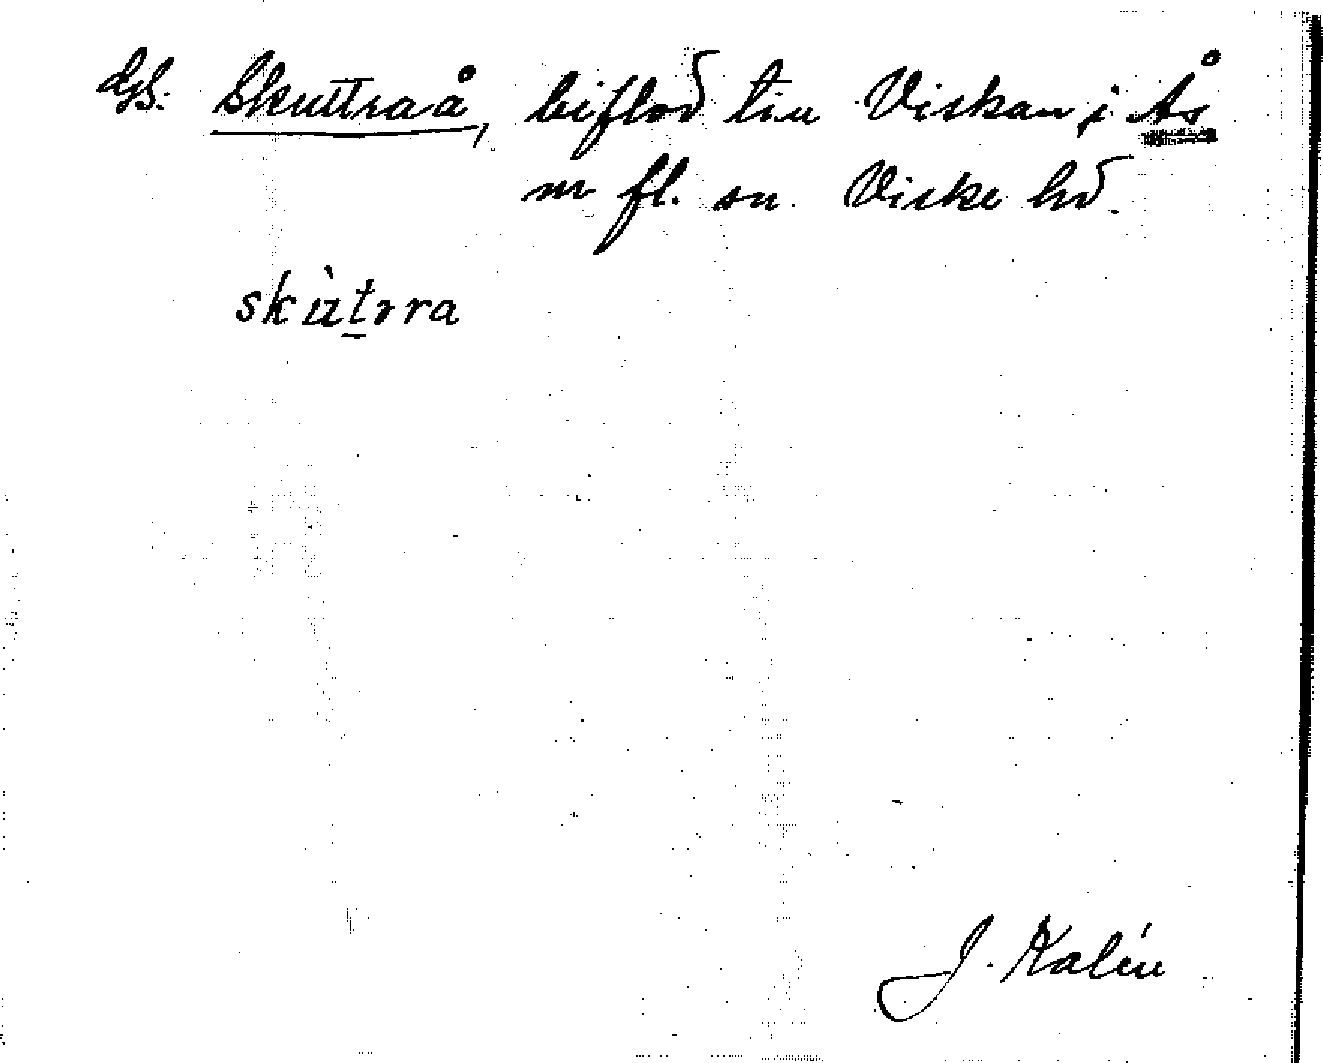 GS. Skuttraå, biflod till Viskan, i Ås
m fl. sn. Viske hd.
skùt̲rra
J. Kalén